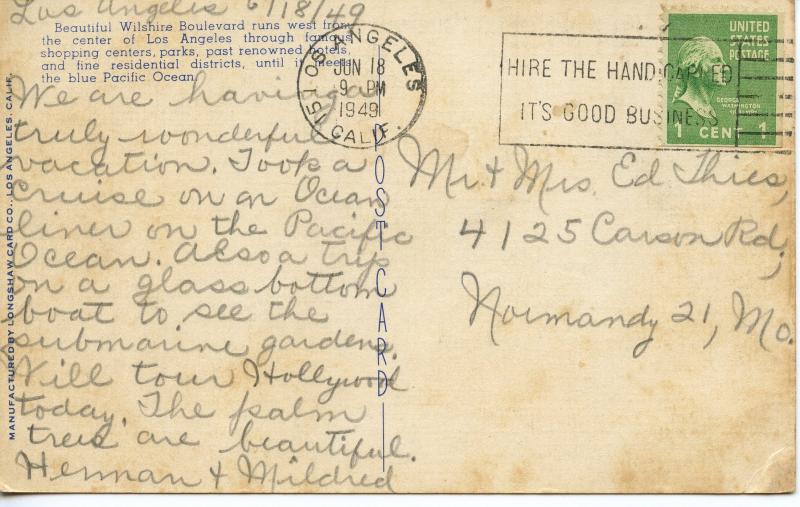 Los Angeles 6/18/49
Beautiful Wilshire Boulevard runs west from
the center of Los Angeles through famous
shopping centers, parks, past renowned hotels,
and fine residential districts, until it meets
the blue Pacific Ocean.
We are having a
truly wonderful
vacation. Took a
cruise on an Ocean
liner on the Pacific
Ocean. Also a trip
on a glass bottom
boat to see the
submarine gardens.
Will tour Hollywood
today. The palm
trees are beautiful.
Herman + Mildred
MANUFACTURED BY LONGSHAW CARD CO., LOS ANGELES, CALIF.
POST CARD
LOS ANGELES
JUN 18
9 PM
1949
CALIF.
HIRE THE HANDICAPPED
IT'S GOOD BUSINESS
UNITED
STATES
POSTAGE
GEORGE
WASHINGTON
1 CENT 1
Mr + Mrs. Ed Thies,
4125 Carson Rd,
Normandy 21, Mo.